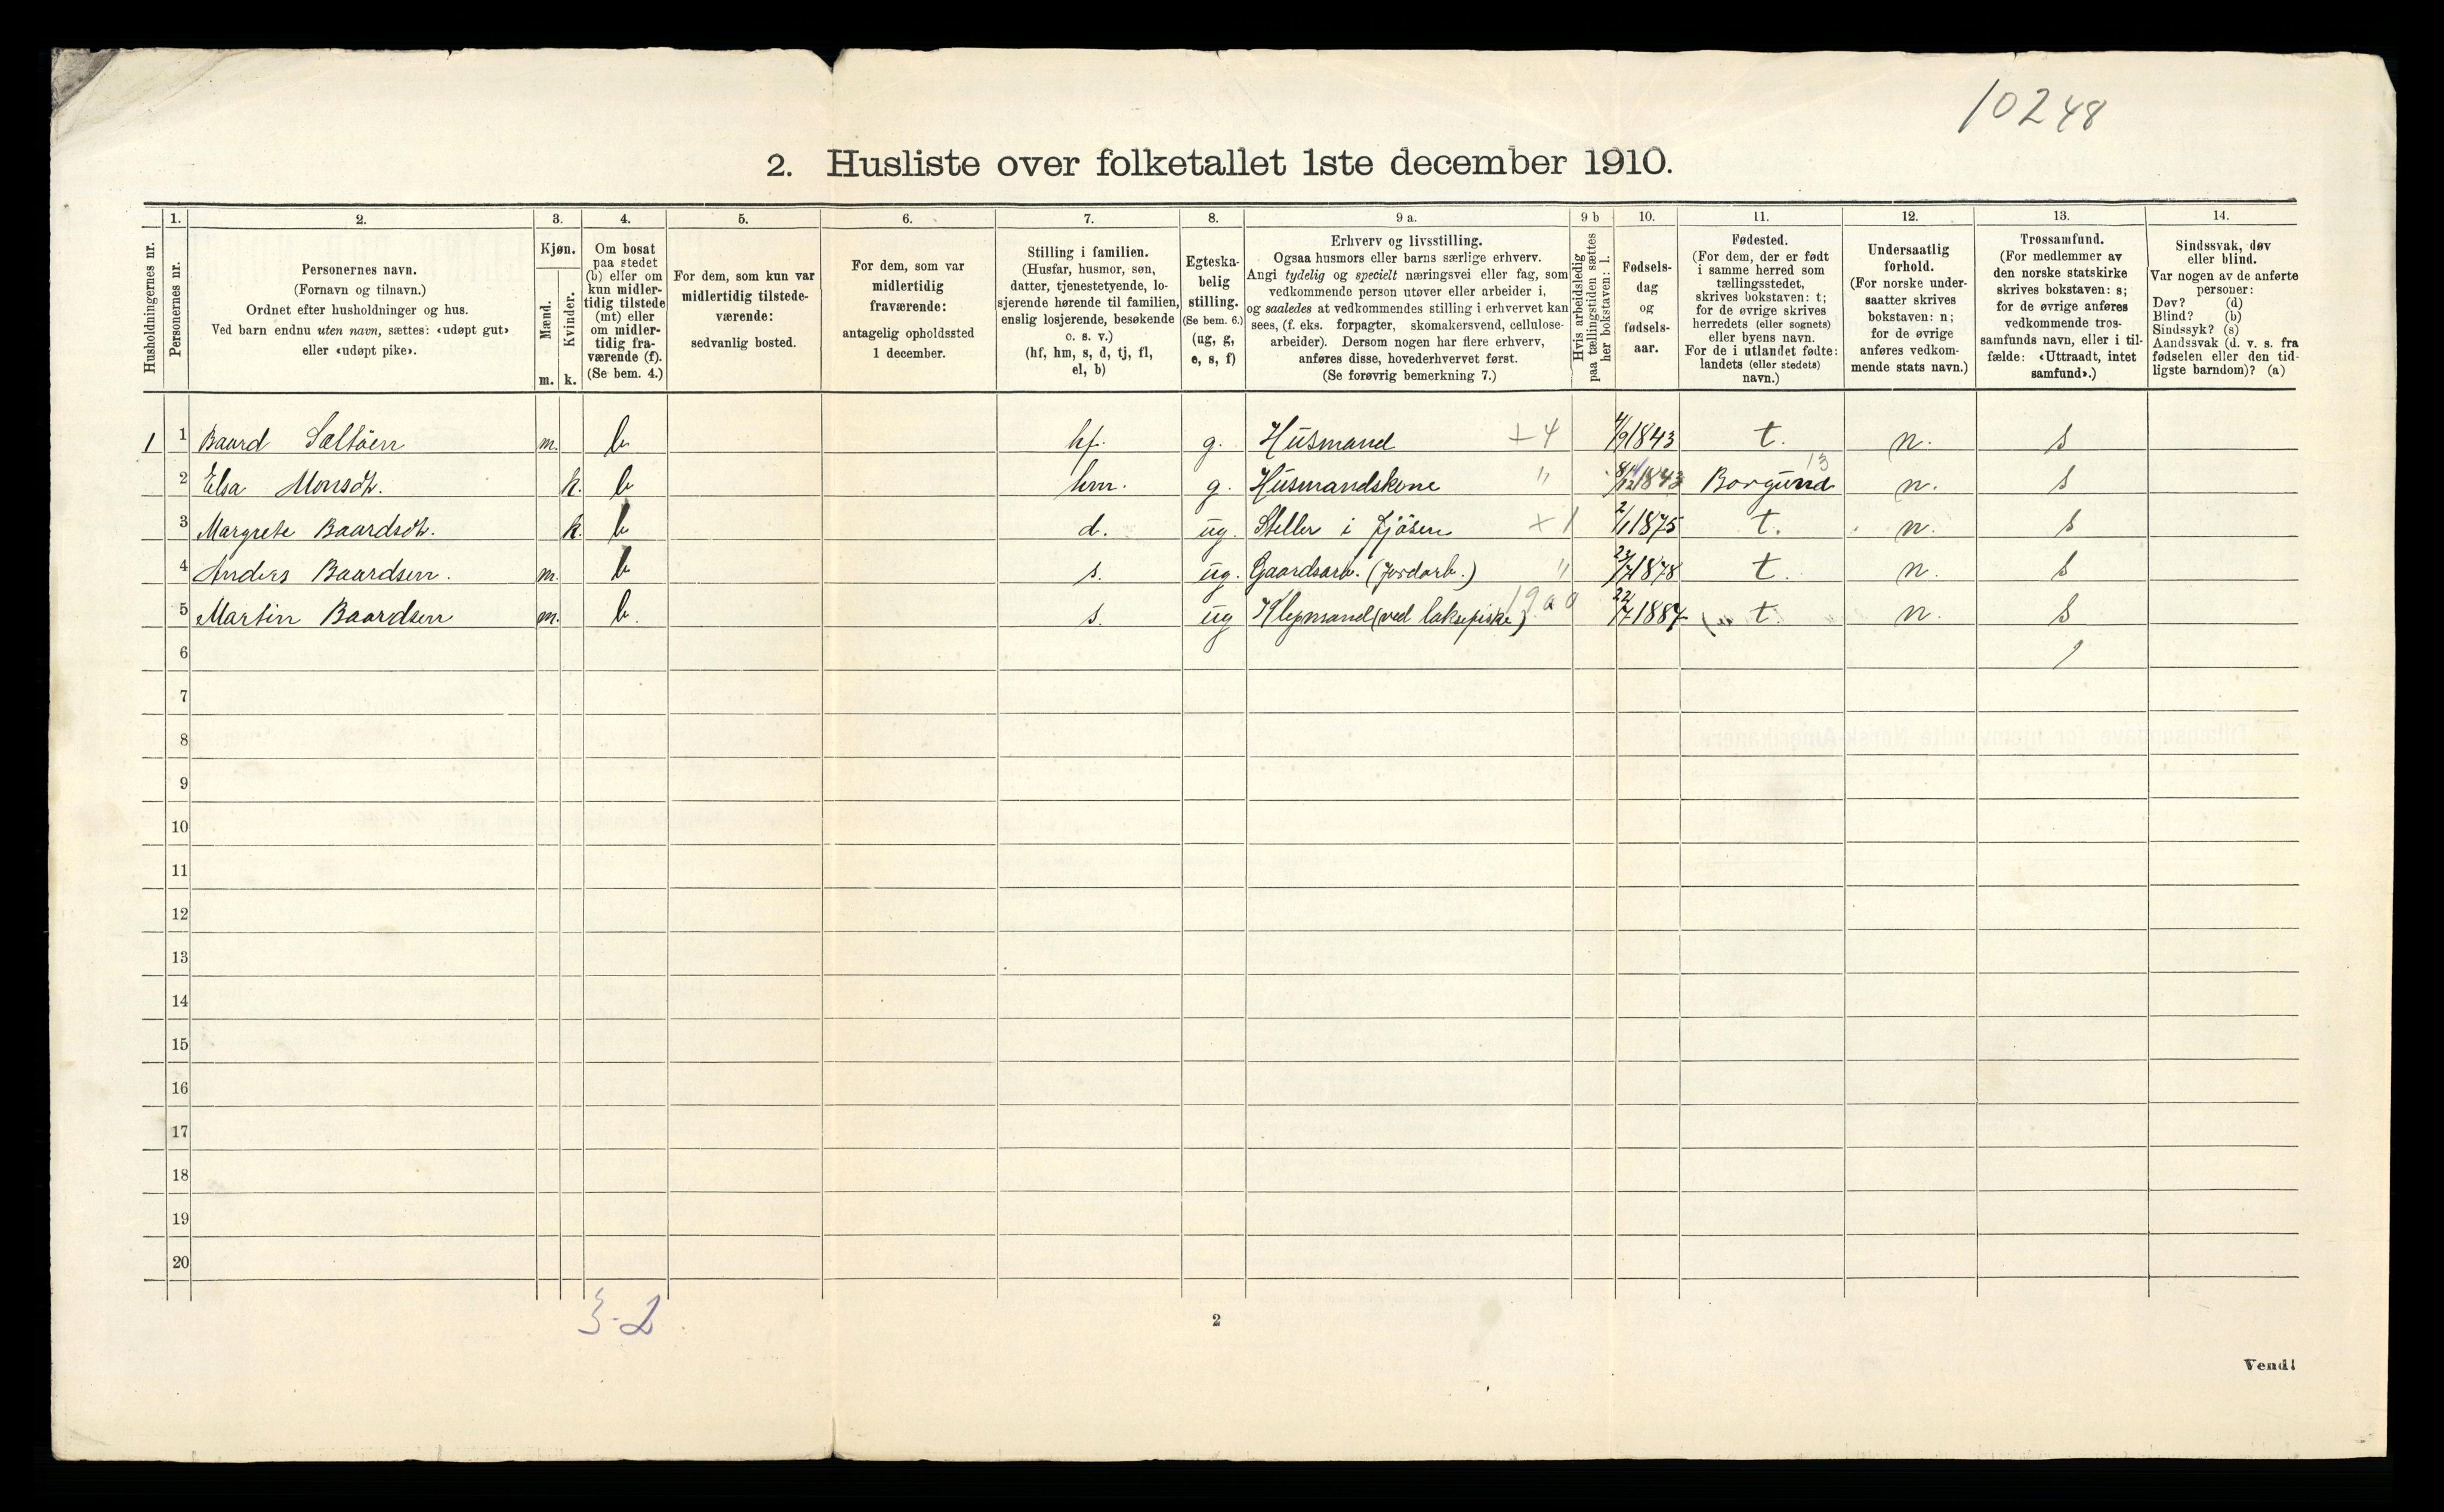 10248
2. Husliste over folketallet 1ste december 1910.
Husholdningernes nr.
1.
Personernes nr.
2.
Personernes navn.
(Fornavn og tilnavn.)
Ordnet efter husholdninger og hus.
Ved barn endnu uten navn, sættes: «udøpt gut»
eller «udøpt pike».
3.
Kjøn.
Mænd.
Kvinder.
m. k.
4.
Om bosat
paa stedet
(b) eller om
kun midler-
tidig tilstede
(mt) eller
om midler-
tidig fra-
værende (f).
(Se bem. 4.)
5.
For dem, som kun var
midlertidig tilstede-
værende:
sedvanlig bosted.
6.
For dem, som var
midlertidig
fraværende:
antagelig opholdssted
1 december.
7.
Stilling i familien.
(Husfar, husmor, søn,
datter, tjenestetyende, lo-
sjerende hørende til familien,
enslig losjerende, besøkende
o. s. v.)
(hf, hm, s, d, tj, fl,
el, b)
8.
Egteska-
belig
stilling.
(Se bem. 6.)
(ug, g,
e, s, f)
9 a.
Erhverv og livsstilling.
Ogsaa husmors eller barns særlige erhverv.
Angi tydelig og specielt næringsvei eller fag, som
vedkommende person utøver eller arbeider i,
og saaledes at vedkommendes stilling i erhvervet kan
sees, (f. eks. forpagter, skomakersvend, cellulose-
arbeider). Dersom nogen har flere erhverv,
anføres disse, hovederhvervet først.
(Se forøvrig bemerkning 7.)
9 b
Hvis arbeidsledig
paa tællingstiden sættes
her bokstaven: l.
10.
Fødsels-
dag
og
fødsels-
aar.
11.
Fødested.
(For dem, der er født
i samme herred som
tællingsstedet,
skrives bokstaven: t;
for de øvrige skrives
herredets (eller sognets)
eller byens navn.
For de i utlandet fødte:
landets (eller stedets)
navn.)
12.
Undersaatlig
forhold.
(For norske under-
saatter skrives
bokstaven: n;
for de øvrige
anføres vedkom-
mende stats navn.)
13.
Trossamfund.
(For medlemmer av
den norske statskirke
skrives bokstaven: s;
for de øvrige anføres
vedkommende tros-
samfunds navn, eller i til-
fælde: «Uttraadt, intet
samfund».)
14.
Sindssvak, døv
eller blind.
Var nogen av de anførte
personer:
Døv? (d)
Blind? (b)
Sindssyk? (s)
Aandssvak (d. v. s. fra
fødselen eller den tid-
ligste barndom)? (a)
1 1 Baard Sæltöen m. b hf. g. Husmand +4 1843 t. n. s
2 Elsa Monsdt. k. b hm. g. Husmandskone " 1843 Borgund 13 n. s
3 Margrete Baardsdt. k. b d. ug. Steller i fjösen +1 2/1 1875 t. n. s
4 Anders Baardsen. m. b s. ug. Gaardsarb. (Jordarb.) " 23/7 1878 t. n. s
5 Martin Baardsen m. b. s. ug Klepmand (ved laksefiske) 22/7 1887 t. n. s
6
7
8
9
10
11
12
13
14
15
16
17
18
19
20
3-2
2
Vend!